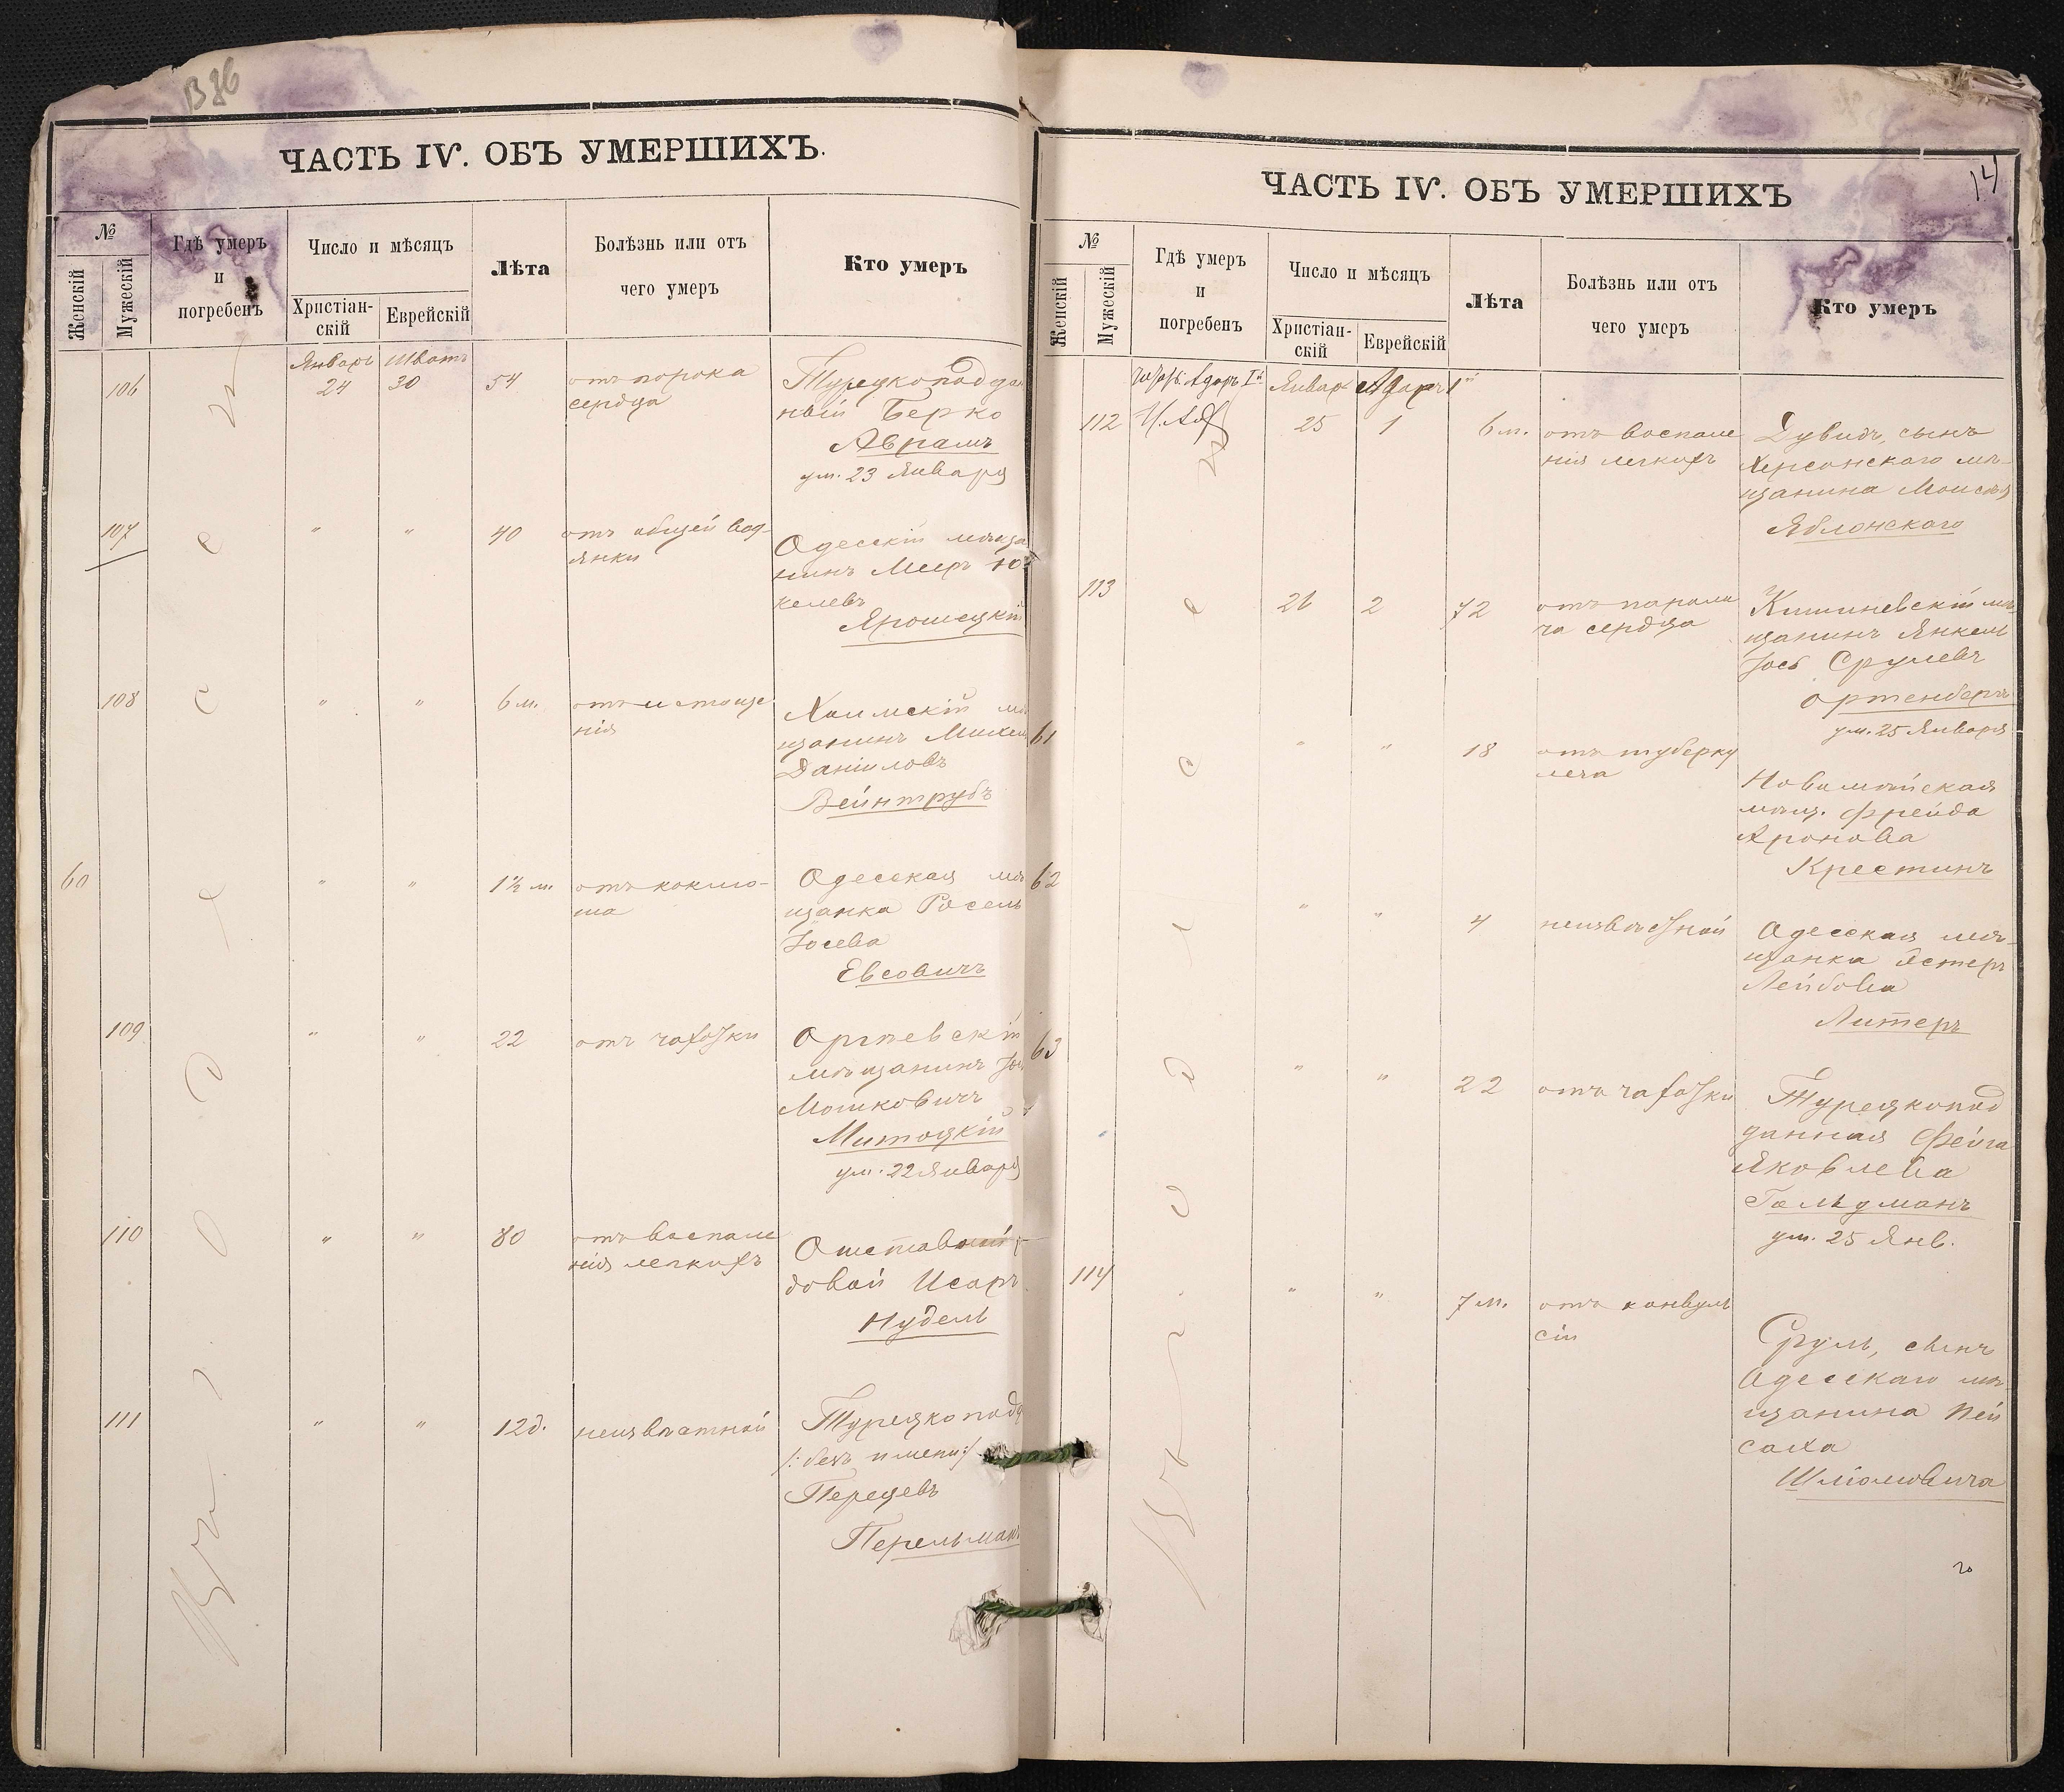 ЧАСТЬ IV. ОБЪ УМЕРШИХЪ.
№
Женскій
Мужескій
Гдѣ умеръ
и
погребенъ
Число и мѣсяцъ
Христіан-
скій
Еврейскій
Лѣта
Болѣзнь или отъ
чего умеръ
Кто умеръ
Въ Одессѣ
Январь Шватъ
106 24 30 54
отъ порока
сердца
Турецкоподдан
ный Берко
Аврамъ
ум. 23 Января
107 " " 40
отъ общей вод-
янки
Одесскій мѣща
нинъ Мееръ
келевъ
Ярошецкій
108 " " 6 м.
отъ истоще
нія
Хаимскій мѣ
щанинъ Михель
Даниловъ
Вейнтрубъ
60 " " 1½ м.
отъ коклю-
ша
Одесская мѣ
щанка Росель
Іосева
Евсовичъ
109 " " 22
отъ чахотки
Оргѣевскій
мѣщанинъ
Мошковичъ
Митоцкій
ум. 22 Января
110 " " 80
отъ воспале
нія легкихъ
Отставной
довой Исаръ
Нудель
111 " " 12 д.
неизвѣстной
Турецкопод
/:безъ имени:/
Перецевъ
Перельманъ
ЧАСТЬ IV. ОБЪ УМЕРШИХЪ
14
№
Женскій
Мужескій
Гдѣ умеръ
и
погребенъ
Число и мѣсяцъ
Христіан-
скій
Еврейскій
Лѣта
Болѣзнь или отъ
чего умеръ
Кто умеръ
Въ Одессѣ
Январь Адаръ 1й
112 25 1 6 м.
отъ воспале
нія легкихъ
Дувидъ, сынъ
Херсонскаго мѣ-
щанина Моисея
Яблонскаго
113 26 2 72
отъ парали
ча сердца
Кишиневскій мѣ-
щанинъ Янкель
Іось Срулевъ
Ортенбергъ
ум. 25 Января
61 " " 18
отъ туберку
леза
Новомѣйская
мѣщ. Фрейда
Аронова
Крестинъ
62 " " 4
неизвѣстной
Одесская мѣ-
щанка Эстеръ
Лейбова
Литеръ
63 " " 22
отъ чахотки
Турецкопод
данная Фейга
Яковлева
Гольдманъ
ум. 25 Янв.
114 " " 7 м.
отъ конвуль
сіи
Сруль, сынъ
Одесскаго мѣ-
щанина Пей
саха
Шліомовича